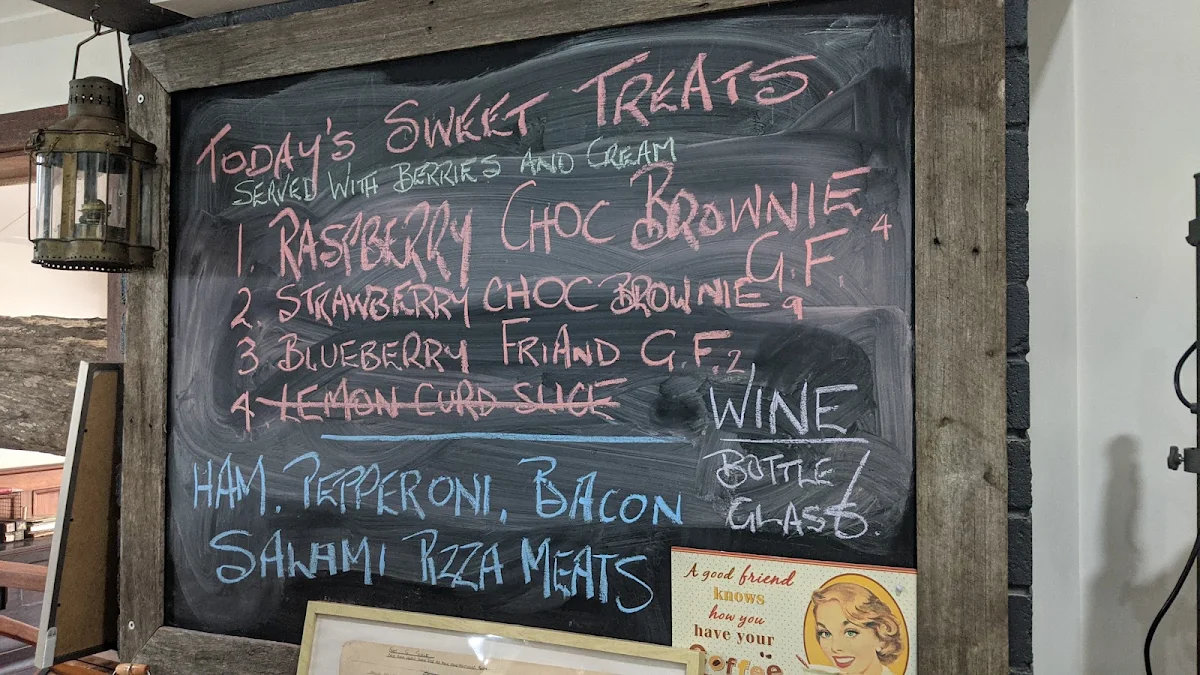 TODAY'S SWEET TREATS
SERVED WITH BERRIES AND CREAM
1. RASPBERRY CHOC BROWNIE 4
G.F.
2. STRAWBERRY CHOC BROWNIE 9
3. BLUEBERRY FRIAND G.F. 2
4 LEMON CURD SLICE
WINE
BOTTLE/
GLASS.
HAM, PEPPERONI, BACON
SALAMI PIZZA MEATS
A good friend
knows
how you
have your
Coffee